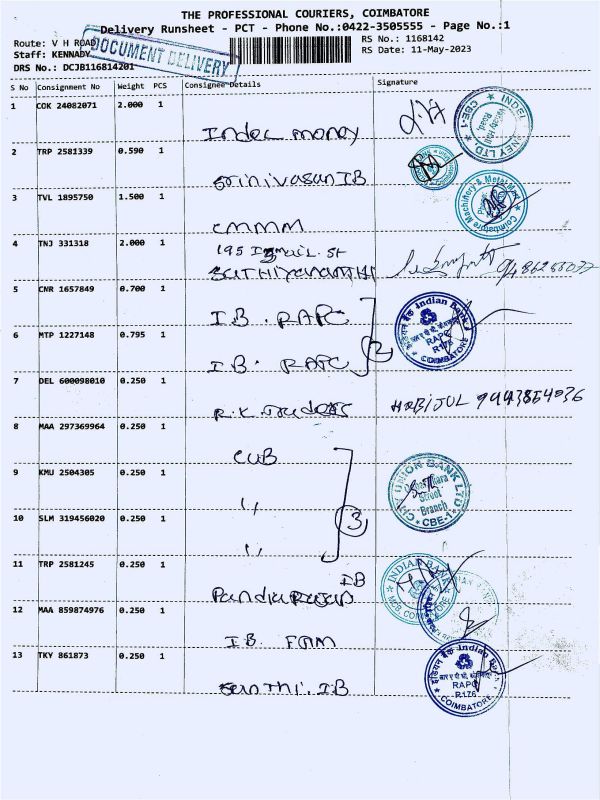 THE PROFESSIONAL COURIERS, COIMBATORE
Delivery Runsheet - PCT - Phone No.:0422-3505555 - Page No.:1
Route: V H ROAD
RS No.: 1168142
Staff: KENNADY
RS Date: 11-May-2023
DRS No.: DCJB116814201
DOCUMENT DELIVERY
S No Consignment No Weight PCS Consignee Details Signature
1 COK 24082071 2.000 1
Indel money
2 TRP 2581339 0.590 1
Srinivasan IB
3 TVL 1895750 1.500 1
CMMM
4 TNJ 331318 2.000 1
195 Ismail St
5 CNR 1657849 0.700 1
I.B. RAPC
6 MTP 1227148 0.795 1
I.B. RAPC
2
7 DEL 600098010 0.250 1
R.K. HABIJUL 9443854036
8 MAA 297369964 0.250 1
CUB
9 KMU 2504305 0.250 1
,,
10 SLM 319456020 0.250 1
,,
3
11 TRP 2581245 0.250 1
IB
12 MAA 859874976 0.250 1
I.B.
13 TKY 861873 0.250 1
Santhi. IB
CBE-1
Coimbatore Machinery &
Indian Bank
RAPC
R176
COIMBATORE
CITY UNION BANK LTD
Street
Branch
CBE-1
INDIAN BANK
Indian Bank
RAPC
R176
COIMBATORE